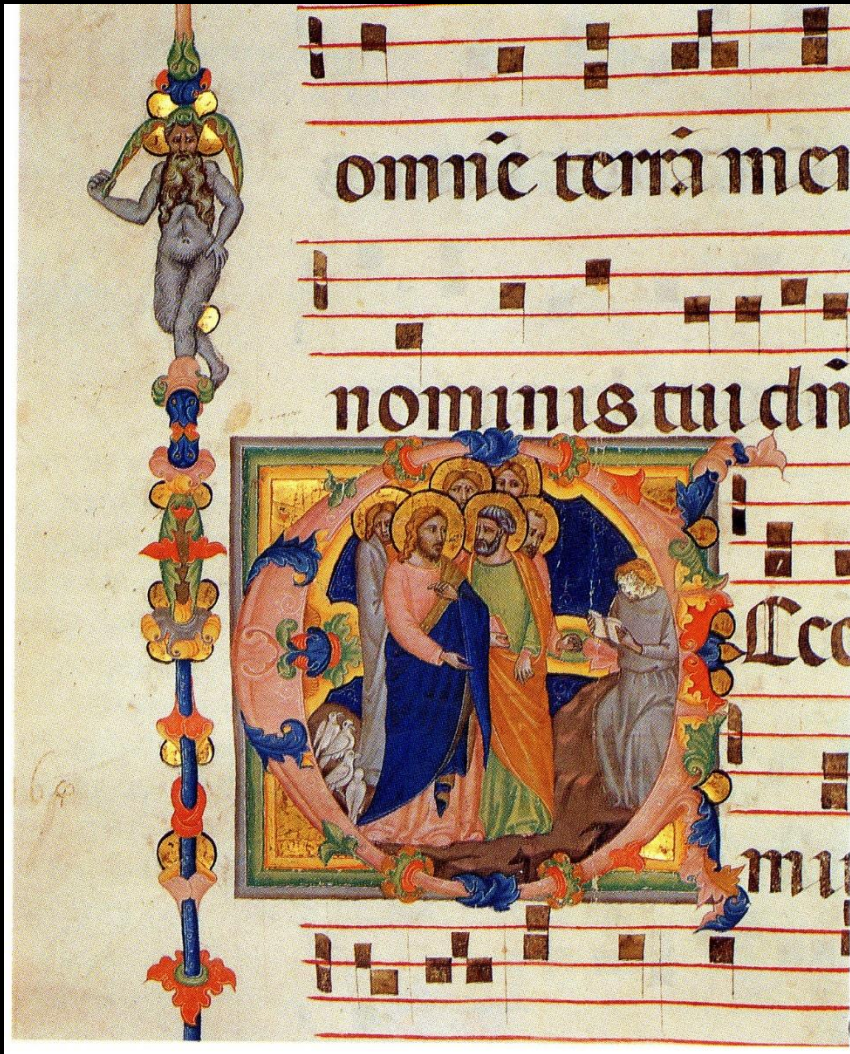 omnē terrā mem
nominis tui dn̄
E Cce
mit